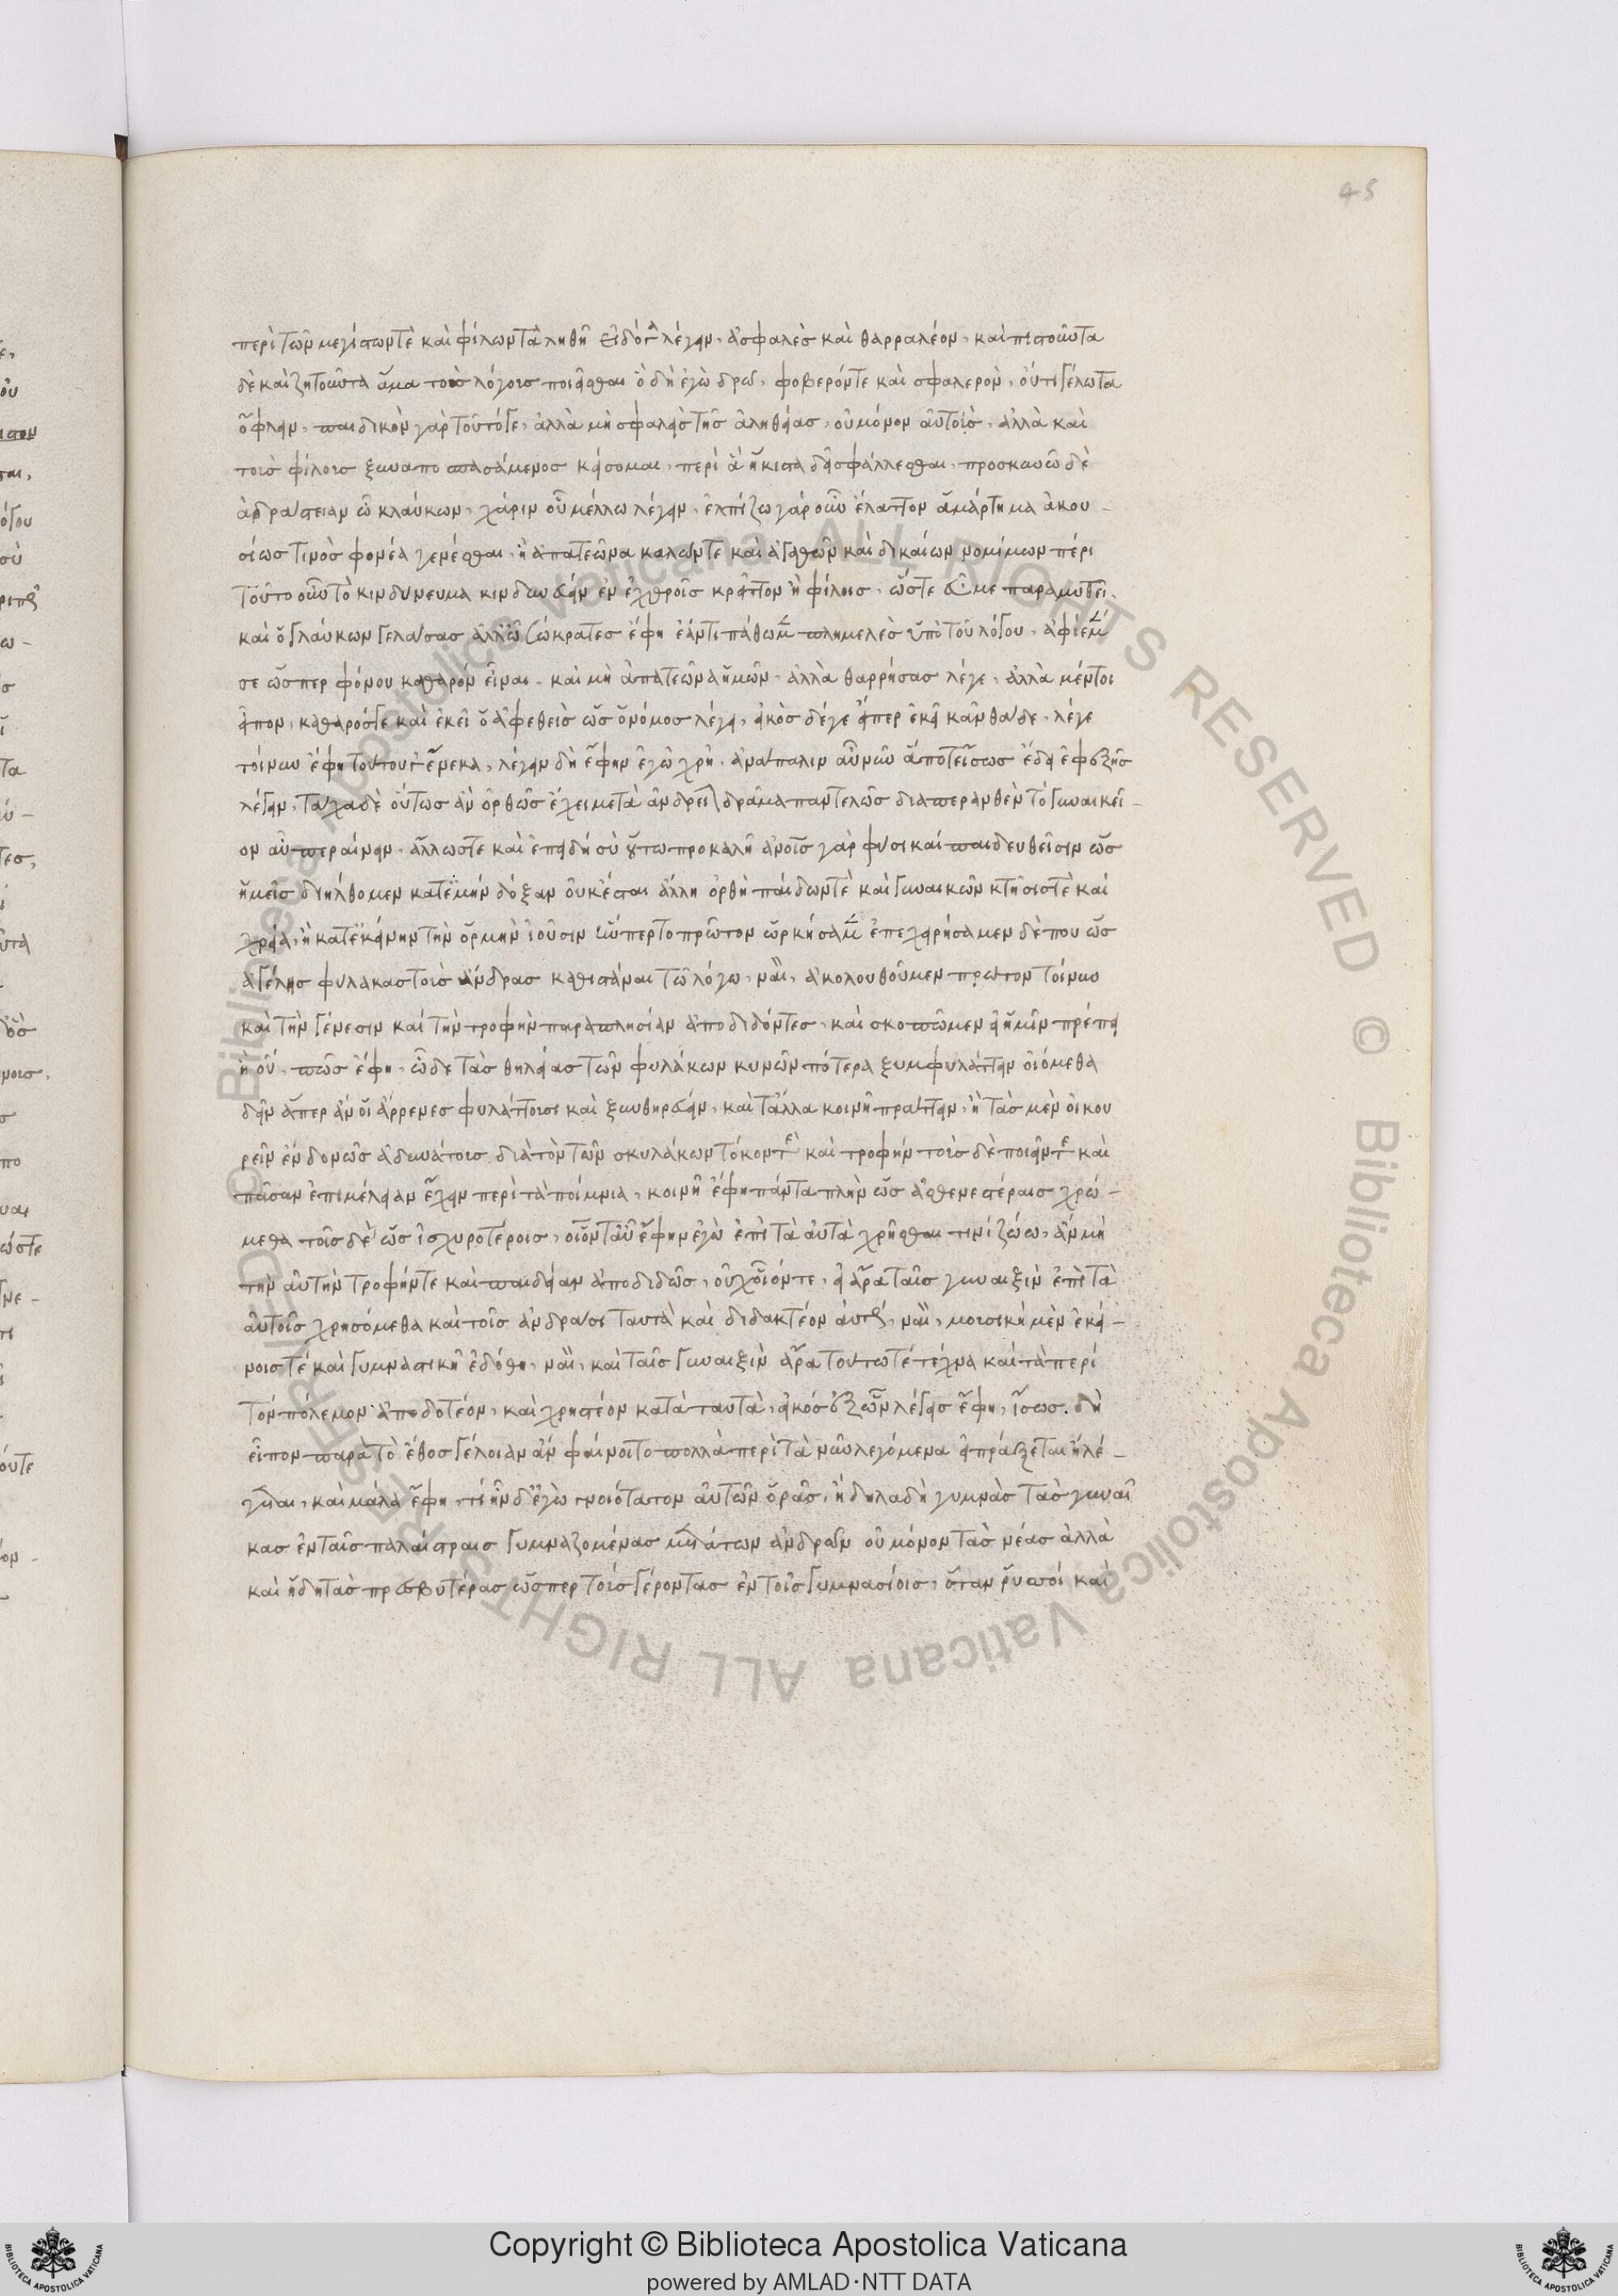 45
περὶ τῶν μεγίστωντὲ καὶ φίλων τἀληθῆ εἰδότα λέγειν, ἀσφαλὲσ καὶ θαρραλέον, καὶ πιστοῦντα
δὲ καὶ ζητοῦντα ἅμα τοὺσ λόγουσ ποιεῖσθαι ὃ δὴ ἐγὼ δρῶ, φοβερόντε καὶ σφαλερὸν, οὔτι γέλωτα
ὄφλειν, παιδικὸν γὰρ τοῦτόγε, ἀλλὰ μὴ σφαλεὶσ τῆσ ἀληθείασ, οὐ μόνον αὐτοὶσ, ἀλλὰ καὶ
τοὺσ φίλουσ ξυναποσπασάμενοσ κείσομαι, περὶ ἃ ἥκιστα δεῖ σφάλλεσθαι, προσκυνῶ δὲ
ἀδράστειαν ὦ κλαύκων, χάριν οὗ μέλλω λέγειν, ἐλπίζω γὰρ οὖν ἔλαττον ἁμάρτημα ἀκου-
σίωσ τινὸσ φονέα γενέσθαι, ἢ ἀπατεῶνα καλῶντε καὶ ἀγαθῶν καὶ δικαίων νομίμων πέρι
τοῦτο οὖν τὸ κινδύνευμα κινδυνεύειν ἐν ἐχθροῖσ κρεῖττον ἢ φίλοισ, ὥστε εὖ με παραμυθεῖ.
καὶ ὁ γλαύκων γελάσασ ἀλλ' ὦ σώκρατεσ ἔφη ἐάν τι πάθωμεν πλημελὲσ ὑπὸ τοῦ λόγου, ἀφίεμέν
σε ὥσπερ φόνου καθαρὸν εἶναι, καὶ μὴ ἀπατεῶνα ἡμῶν, ἀλλὰ θαρρήσασ λέγε, ἀλλὰ μέντοι
εἶπον, καθαρόσγε καὶ ἐκεῖ ὁ ἀφεθεὶσ ὡσ ὁ νόμοσ λέγει, εἰκὸσ δέγε εἴπερ ἐκεῖ κἀνθάδε, λέγε
τοίνυν ἔφη τούτου γ' ἕνεκα, λέγειν δὴ ἔφην ἐγὼ χρὴ, ἀνάπαλιν αὖ νῦν ἃ ποτ' ἴσωσ ἔδει ἐφεξῆσ
λέγειν, τάχα δὲ οὕτωσ ἂν ὀρθῶσ ἔχει μετὰ ἀνδρεῖον δρᾶμα παντελῶσ διαπερανθὲν τὸ γυναικεῖ-
ον αὖ περαίνειν, ἄλλωστε καὶ ἐπειδὴ σὺ οὕτω προκαλῆ ἀνοῖσ γὰρ φύσι καὶ παιδευθεῖσιν ὡσ
ἡμεῖσ διήλθομεν κατ' ἐμὴν δόξαν οὐκ ἔσται ἄλλη ὀρθὴ παίδωντὲ καὶ γυναικῶν κτῆσιστὲ καὶ
χρεία, ἢ κατ' ἐκείνην τὴν ὁρμὴν ἰοῦσιν ὥνπερ το πρῶτον ὡρμήσαμεν ἐπεχειρήσαμεν δὲ που ὡσ
ἀγέλησ φύλακασ τοὺσ ἄνδρασ καθιστάναι τῶ λόγω, ναὶ, ἀκολουθοῦμεν πρῶτον τοίνυν
καὶ τὴν γένεσιν καὶ τὴν τροφὴν παραπλησίαν ἀποδιδόντεσ, καὶ σκοπῶμεν εἰ ἡμῖν πρέπει
ἢ οὔ, πῶσ ἔφη, ὧδε τὰσ θηλείασ τῶν φυλάκων κυνῶν πότερα ξυμφυλάττειν οἰόμεθα
δεῖν ἅπερ ἂν οἱ ἄρρενεσ φυλάττουσι καὶ ξυνθηρεύειν, καὶ τἆλλα κοινῆ πράττειν, ἢ τὰσ μὲν οἰκου
ρεῖν ἔνδον ὡσ ἀδυνάτουσ διὰ τὸν τῶν σκυλάκων τόκον τὲ καὶ τροφὴν τοὺσ δὲ πονεῖν τε καὶ
πᾶσαν ἐπιμέλειαν ἔχειν περὶ τὰ ποίμνια, κοινῆ ἔφη πάντα πλὴν ὡσ ἀσθενεστέραισ χρώ-
μεθα τοῖσ δὲ ὡσ ἰσχυροτέροισ, οἷόντ' οὖν ἔφην ἐγὼ ἐπὶ τὰ αὐτὰ χρῆσθαι τινὶ ζώω, ἂν μὴ
τὴν αὐτὴν τροφήντε καὶ παιδείαν ἀποδιδῶσ, οὐχ οἷόντε, εἰ ἄρα ταῖσ γυναιξὶν ἐπὶ τὰ
αὐτοῖσ χρησόμεθα καὶ τοῖσ ἀνδράσι ταυτὰ καὶ διδακτέον αὐτάσ, ναὶ, μουσικὴ μὲν ἐκεί-
νοισ τέ καὶ γυμναστικὴ ἐδόθη, ναὶ, καὶ ταῖσ γυναιξὶν ἄρα τούτω τέ τέχνα καὶ τὰ περὶ
τὸν πόλεμον ἀποδοτέον, καὶ χρηστέον κατὰ ταυτὰ, εἰκόσ ἐξ ὧν λέγεισ ἔφη, ἴσωσ. δὴ
εἶπον παρὰ τὸ ἔθοσ γέλοιαν ἂν φαίνοιτο πολλὰ περὶ τὰ νῦν λεγόμενα εἰ πράξεται ἧ λέ-
γεται, καὶ μάλα ἔφη, τί ἦν δ' ἐγὼ γνοιότατον αὐτῶν ὁρᾶσ, ἢ δηλαδὴ γυμνὰσ τὰσ γυναῖ
κασ ἐν ταῖσ παλαίστραισ γυμναζομένασ μετὰ τῶν ἀνδρῶν οὐ μόνον τὰσ νέασ ἀλλὰ
καὶ ἤδη τὰσ πρεσβυτέρασ ὥσπερ τοὺσ γέροντασ ἐν τοῖσ γυμνασίοισ, ὅταν ῥυσοί καὶ
Copyright © Biblioteca Apostolica Vaticana
powered by AMLAD·NTT DATA